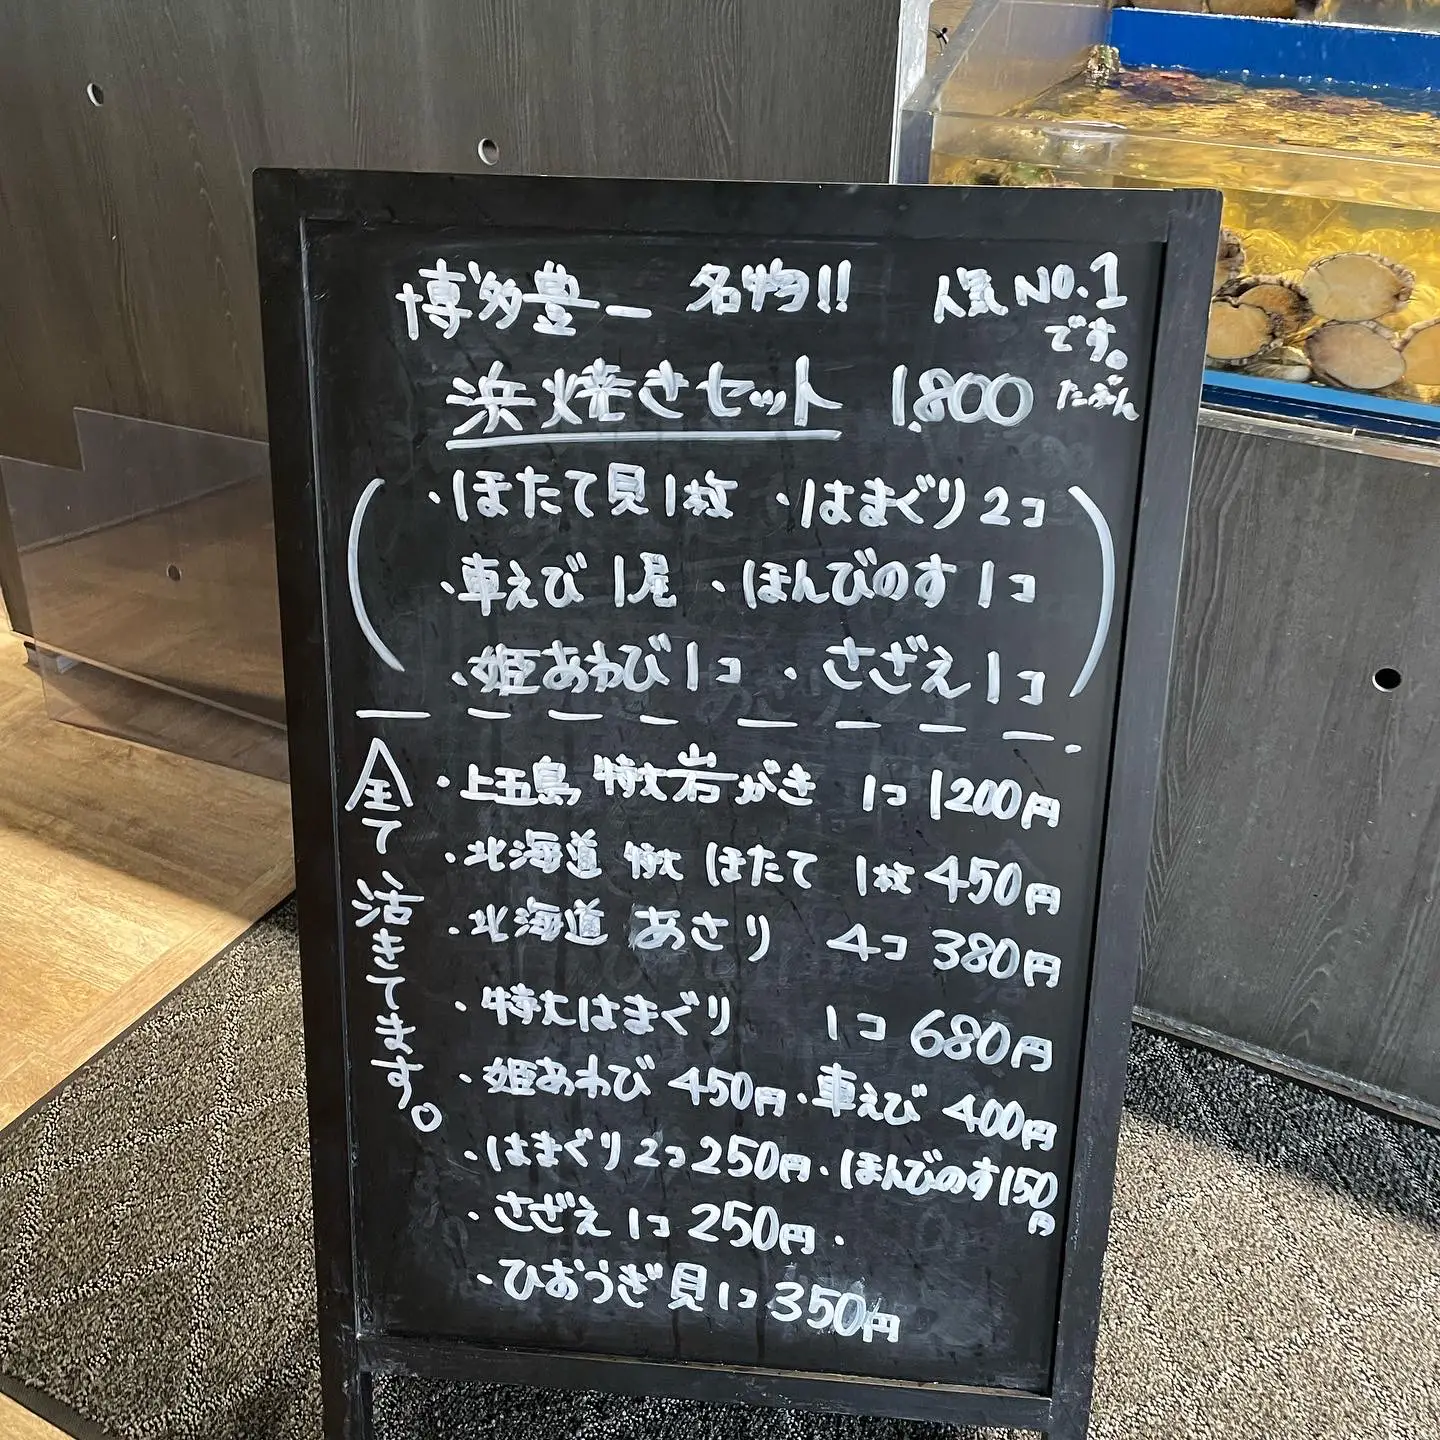 博多豊一 名物!! 人気NO.1
です。
たぶん
浜焼きセット 1,800
・ほたて貝1枚 ・はまぐり2コ
・車えび 1尾 ・ほんびのす 1コ
・姫あわび1コ ・さざえ1コ
全て活きてます。
・上五島 特大岩がき 1コ 1200円
・北海道 特大 ほたて 1枚 450円
・北海道 あさり 4コ 380円
・特大はまぐり 1コ 680円
・姫あわび 450円・車えび 400円
・はまぐり2コ250円・ほんびのす150円
・さざえ 1コ 250円・
・ひおうぎ貝1コ 350円